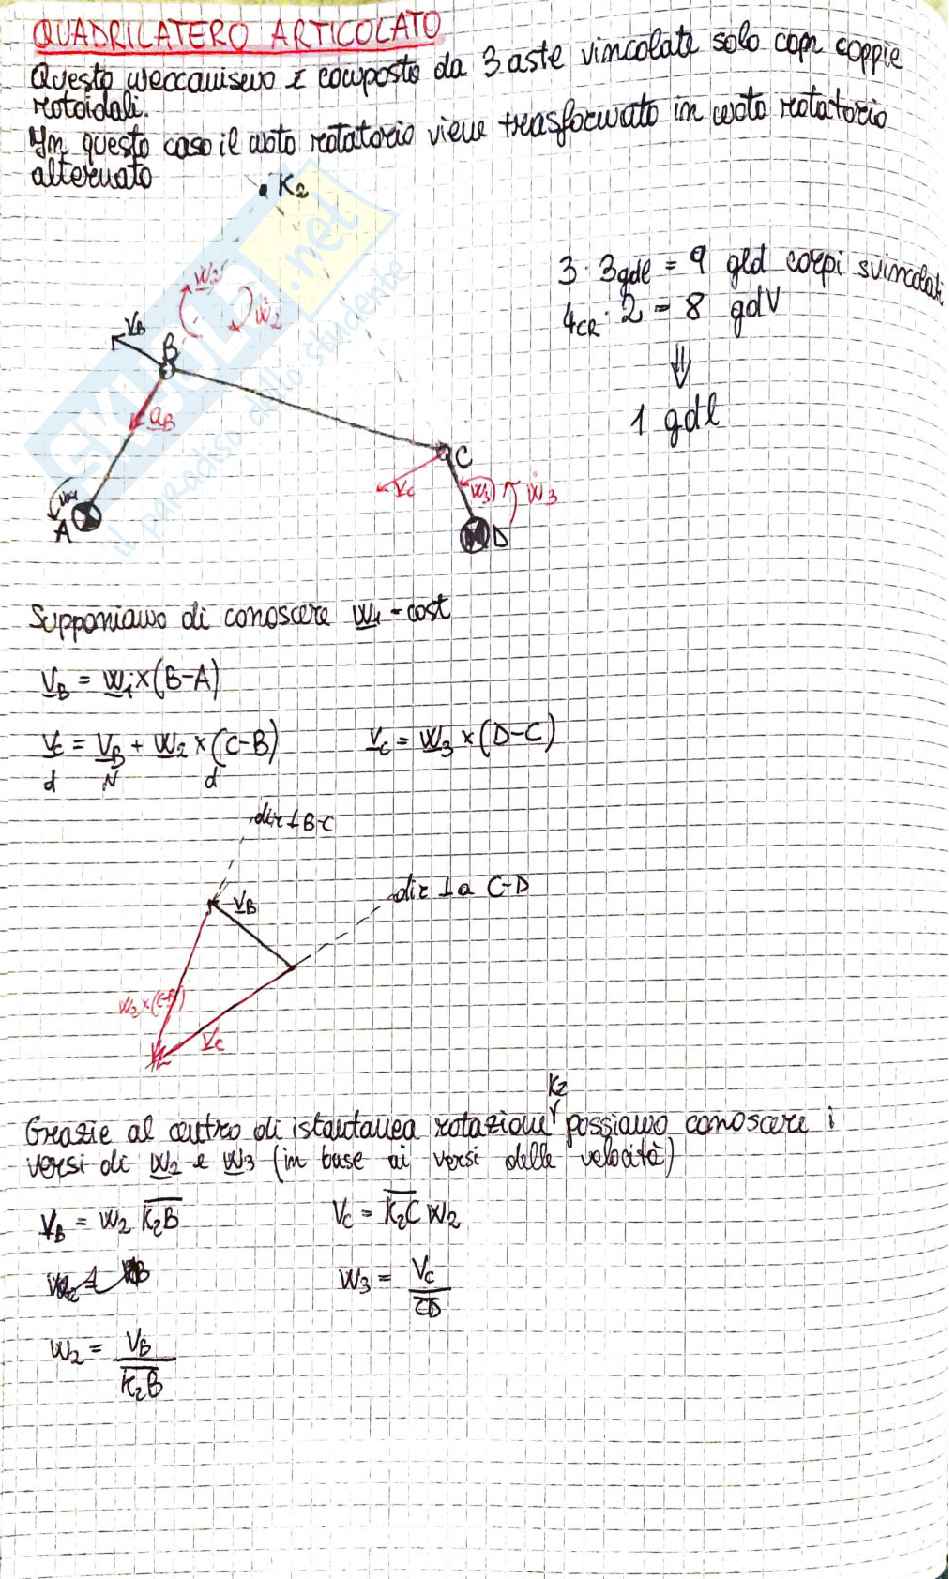 QUADRILATERO ARTICOLATO
Questo meccanismo è composto da 3 aste vincolate solo con coppie
rotoidali.
In questo caso il moto rotatorio viene trasformato in moto rotatorio
alternato
K2
3 · 3gdl = 9 gld corpi svincolati
4CR · 2 = 8 gdV
⇓
1 gdl
w2
ẇ2
VB
B
aB
C
Vc
w3
ẇ3
w1
A
D
SKUOLA.net
il paradiso dello studente
Supponiamo di conoscere w1 = cost
VB = w1 × (B-A)
Vc = VB + w2 × (C-B) Vc = w3 × (D-C)
d N d
dir ⊥ B-C
dir ⊥ a C-D
VB
w2 × (C-B)
Vc
K2
Grazie al centro di istantanea rotazione possiamo conoscere i
versi di w2 e w3 (in base ai versi delle velocità)
VB = w2 K2B Vc = K2C w2
w3 = Vc / CD
w2 = VB / K2B